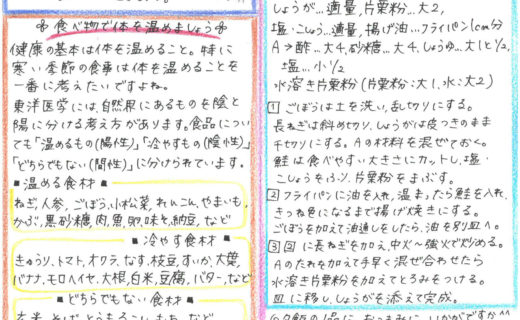 食べ物で体を温めましょう
健康の基本は体を温めること。特に
寒い季節の食事は体を温めることを
一番に考えたいですよね。
東洋医学には、自然界にあるものを陰と
陽に分ける考え方があります。食品につい
ても「温めるもの(陽性)」「冷やすもの(陰性)」
「どちらでもない(間性)」に分けられています。
■温める食材■
ねぎ、人参、ごぼう、小松菜、れんこん、やまいも、
かぶ、黒砂糖、肉、魚、卵、味そ、納豆、など
■冷やす食材■
きゅうり、トマト、オクラ、なす、枝豆、すいか、大葉、
バナナ、モロヘイヤ、大根、白米、豆腐、バター、など
■どちらでもない食材■
玄米、そば、とうもろこし、もち、など
しょうが…適量、片栗粉…大2、
塩・こしょう…適量、揚げ油…フライパン1cm分
A→酢…大4、砂糖…大4、しょうゆ…大1と1/2、
塩…小1/2
水溶き片栗粉(片栗粉:大1、水:大2)
1 ごぼうは土を洗い、乱切りにする。
長ねぎは斜め切り、しょうがは皮つきのまま
千切りにする。Aの材料を混ぜておく。
鮭は食べやすい大きさにカットし、塩・
こしょうをふり、片栗粉をまぶす。
2 フライパンに油を入れ、温まったら鮭を入れ、
きつね色になるまで揚げ焼きにする。
ごぼうを加えて油通しをしたら、油を別皿へ。
3 2に長ねぎを加え、中火〜強火で炒める。
Aのたれを加えて手早く混ぜ合わせたら
水溶き片栗粉を加えてとろみをつける。
皿に移し、しょうがを添えて完成。